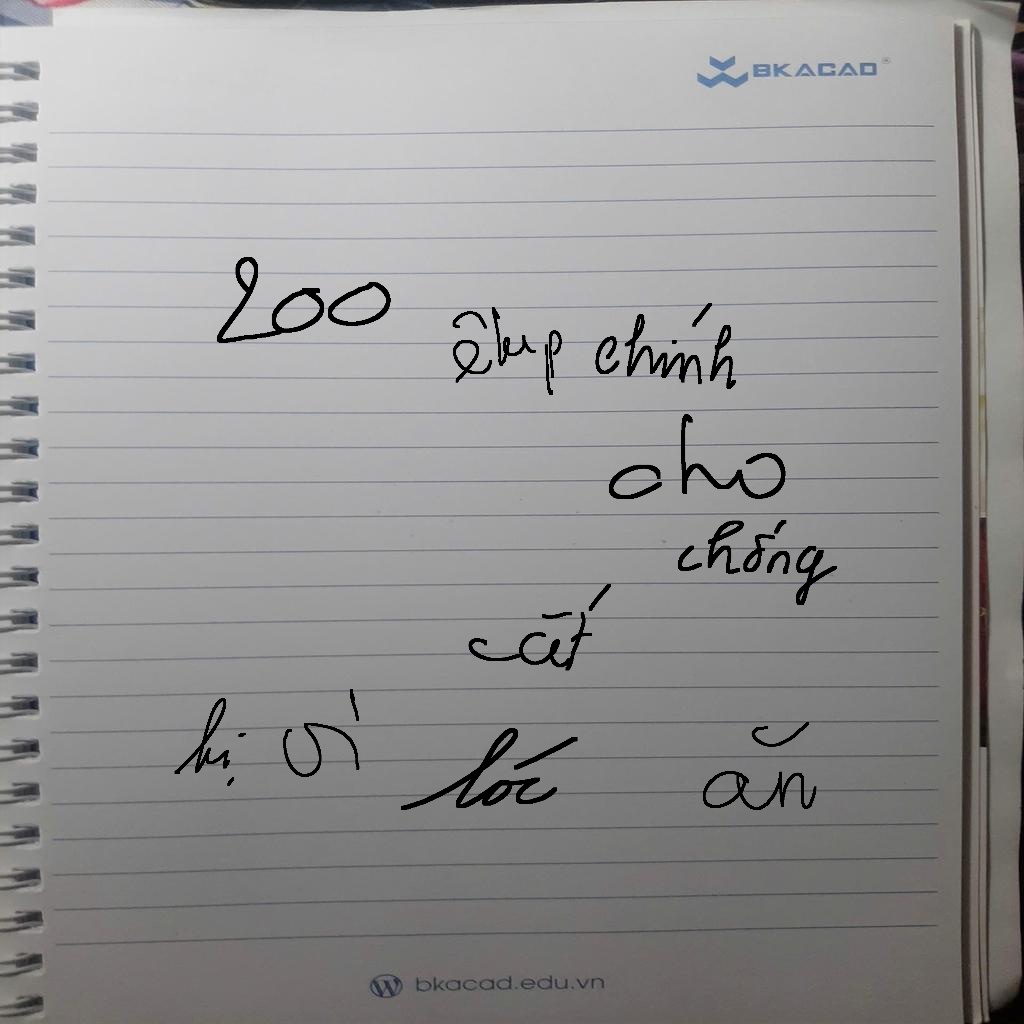 BKACAD
200
chính
cho
chống
cất
bị vì lóc ăn
bkacad.edu.vn